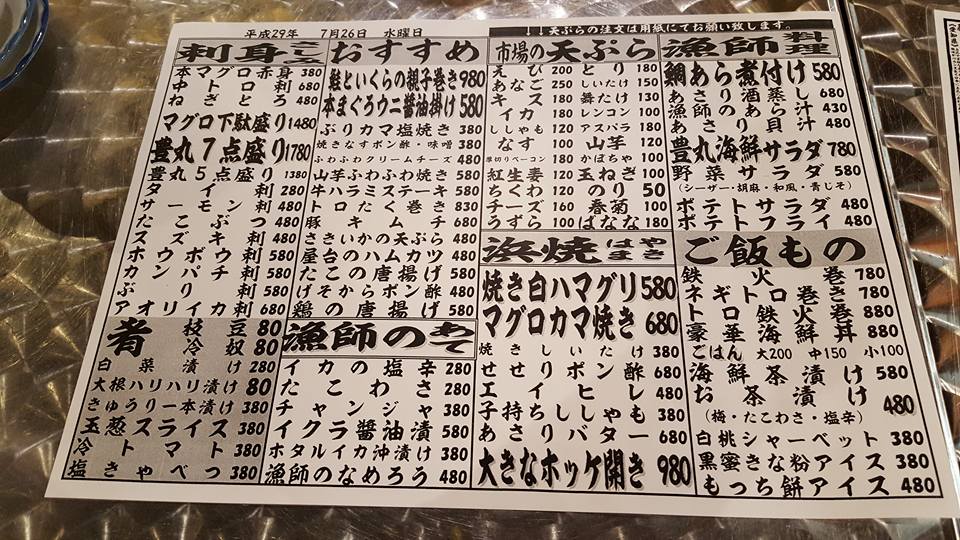 平成29年 7月26日 水曜日
↓↓天ぷらの注文は用紙にてお願い致します。
刺身 さしみ
本マグロ赤身 380
中トロ刺 680
ねぎとろ 480
マグロ下駄盛り 1480
豊丸7点盛り 1780
豊丸5点盛り 1380
タイ刺 280
サーモン刺 480
たこぶつ 480
スズキ刺 480
ホウボウ刺 580
カンパチ刺 580
ぶり刺 580
アオリイカ刺 680
肴
枝豆 80
冷奴 80
白菜漬け 280
大根ハリハリ漬け 80
きゅうり一本漬け 380
玉葱スライス 380
冷トマト 380
塩きゃべつ 380
おすすめ
鮭といくらの親子巻き 980
本まぐろウニ醤油掛け 580
ぶりカマ塩焼き 380
焼きなすポン酢・味噌 380
ふわふわクリームチーズ 480
山芋ふわふわ焼き 580
牛ハラミステーキ 580
トロたく巻き 830
豚キムチ 680
さきいかの天ぷら 480
屋台のハムカツ 480
たこの唐揚げ 580
げそからポン酢 480
鶏の唐揚げ 580
漁師のあて
イカの塩辛 280
たこわさ 280
チャンジャ 380
イクラ醤油漬 580
ホタルイカ沖漬け 380
漁師のなめろう 480
市場の天ぷら
えび 200 とり 180
あなご 250 しいたけ 150
キス 180 舞たけ 130
イカ 180 レンコン 100
ししゃも 120 アスパラ 180
なす 100 山芋 120
厚切りベーコン 180 かぼちゃ 100
紅生姜 120 玉ねぎ 100
ちくわ 120 のり 50
チーズ 160 春菊 100
うずら 100 ばなな 180
浜焼 はまやき
焼き白ハマグリ 580
マグロカマ焼き 680
焼きしいたけ 380
せせりポン酢 680
エイヒレ 480
子持ちししゃも 380
あさりバター 680
大きなホッケ開き 980
漁師料理
鯛あら煮付け 580
あさり酒蒸し 680
漁師のあら汁 430
あさり貝汁 480
豊丸海鮮サラダ 780
野菜サラダ 580
(シーザー・胡麻・和風・青じそ)
ポテトサラダ 480
ポテトフライ 480
ご飯もの
鉄火巻き 780
ネギトロ巻き 780
トロ鉄火巻 880
豪華海鮮丼 880
ごはん 大200 中150 小100
海鮮茶漬け 580
お茶漬け 480
(梅・たこわさ・塩辛)
白桃シャーベット 380
黒蜜きな粉アイス 380
もっち餅アイス 480